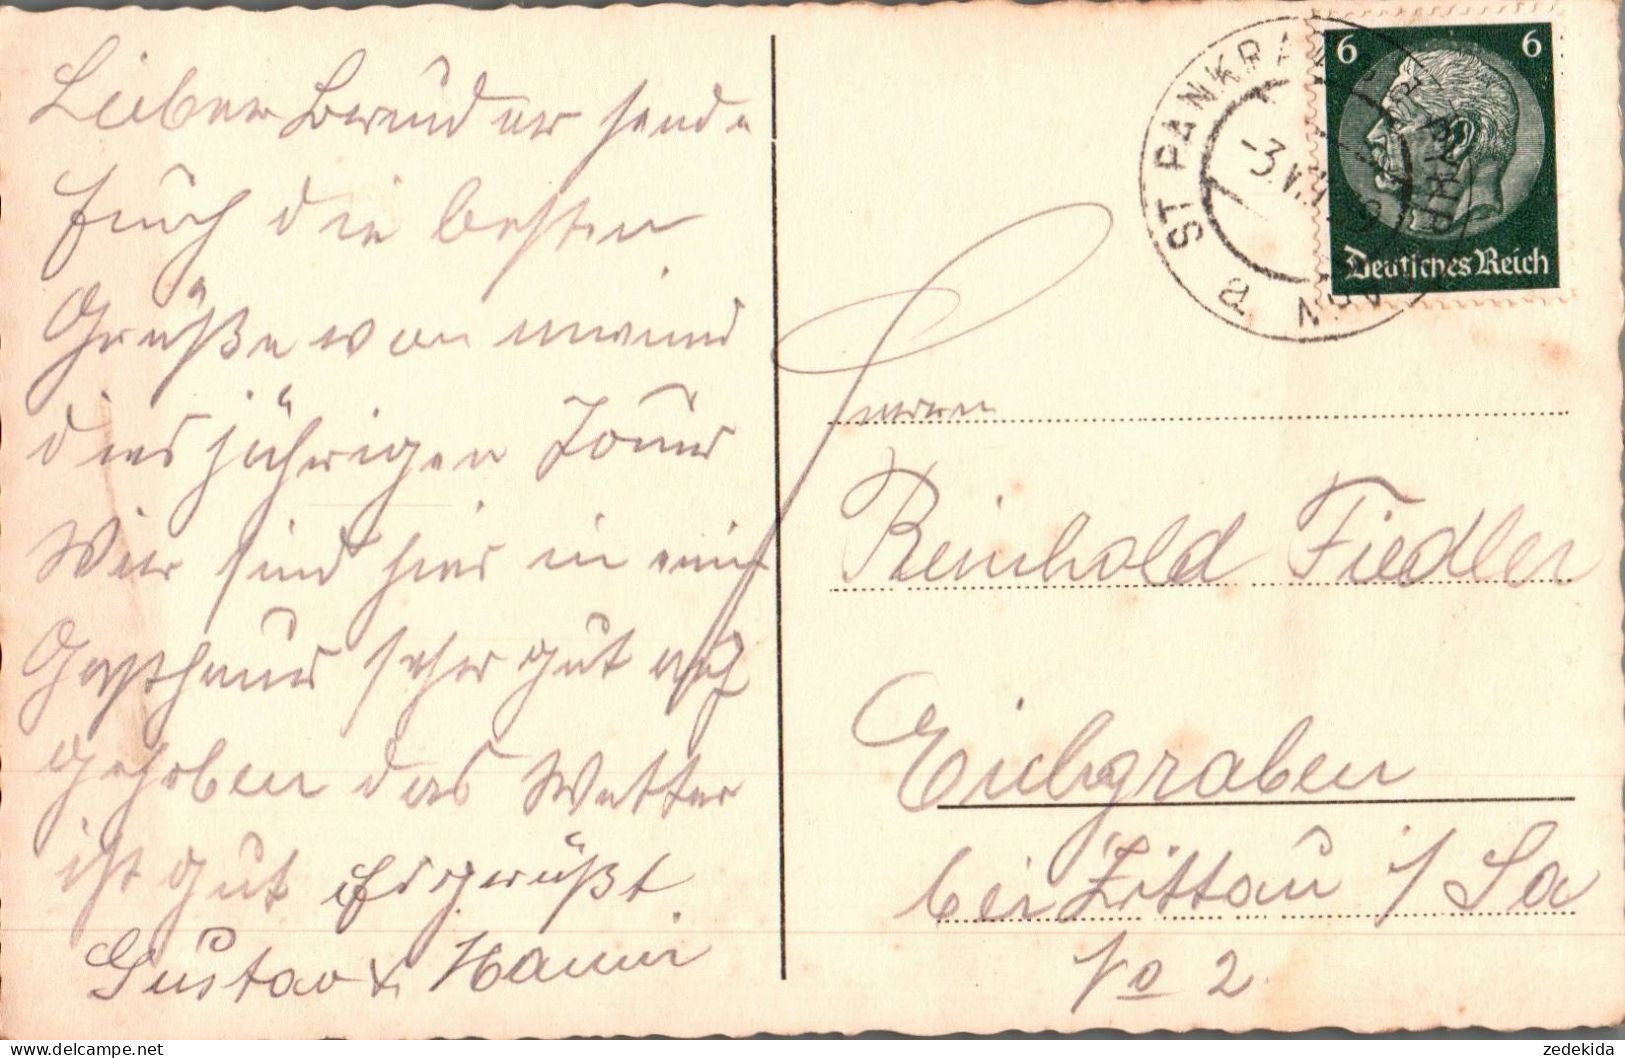 Lieber Bruder sende
Euch die besten
Grüße von unserer
dies jährigen Tour
Wir sind hier in ein
Gasthaus sehr gut auf
gehoben das Wetter
ist gut Es grüßt
Gustav & Hanni
ST PANKRAZ
-3.VI.
a
6 6
Deutsches Reich
Herrn
Reinhold Fiedler
Eichgraben
bei Zittau i/Sa
No 2
zedekida